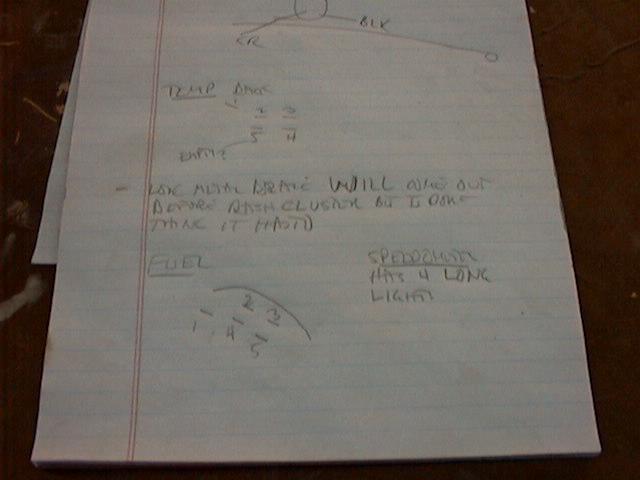 BLK
GR
TEMP BACK
1 2 3
5 4
EMPTY
- LOW METAL BRAKE WILL COME OUT
BEFORE DASH CLUSTER BUT I DONT
THINK IT HAS TO
FUEL
SPEEDOMETER
HAS 4 LONG
LIGHTS
2 3
1 4
5